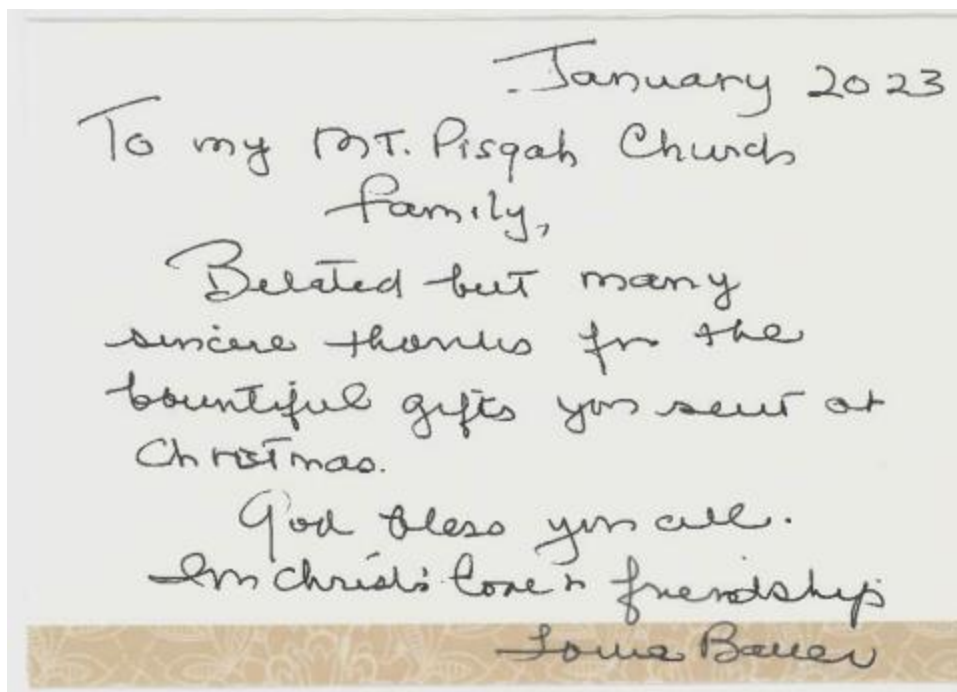 January 2023
To my MT. Pisgah Church
family,
Belated but many
sincere thanks for the
bountiful gifts you sent at
Christmas.
God bless you all.
In Christ's love & friendship